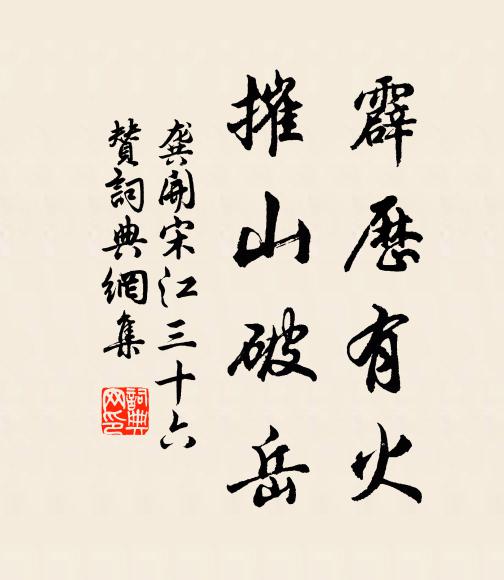 霹歷有火
摧山破岳
龔開宋江三十六
贊詞典網集
詞典
网印